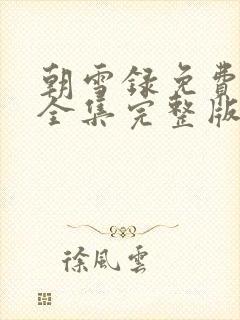 朝雪録免費
全集完整版
徐風雲